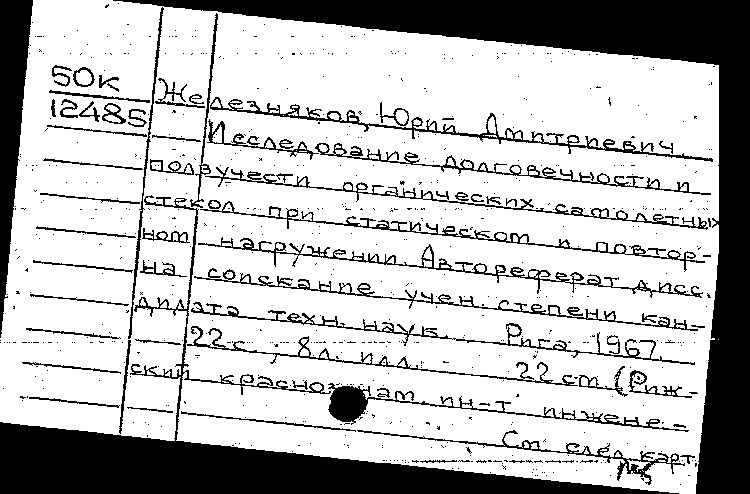 50к
12485
Железняков, Юрий Дмитриевич.
Исследование долговечности и
ползучести органических самолетных
стекол при статическом и повтор-
ном нагружении. Автореферат дисс.
на соискание учен. степени кан-
дидата техн. наук. Рига, 1967.
22 с.; 8 л. илл. 22 см (Риж-
ский краснознам. ин-т инжене-
См. след. карт.